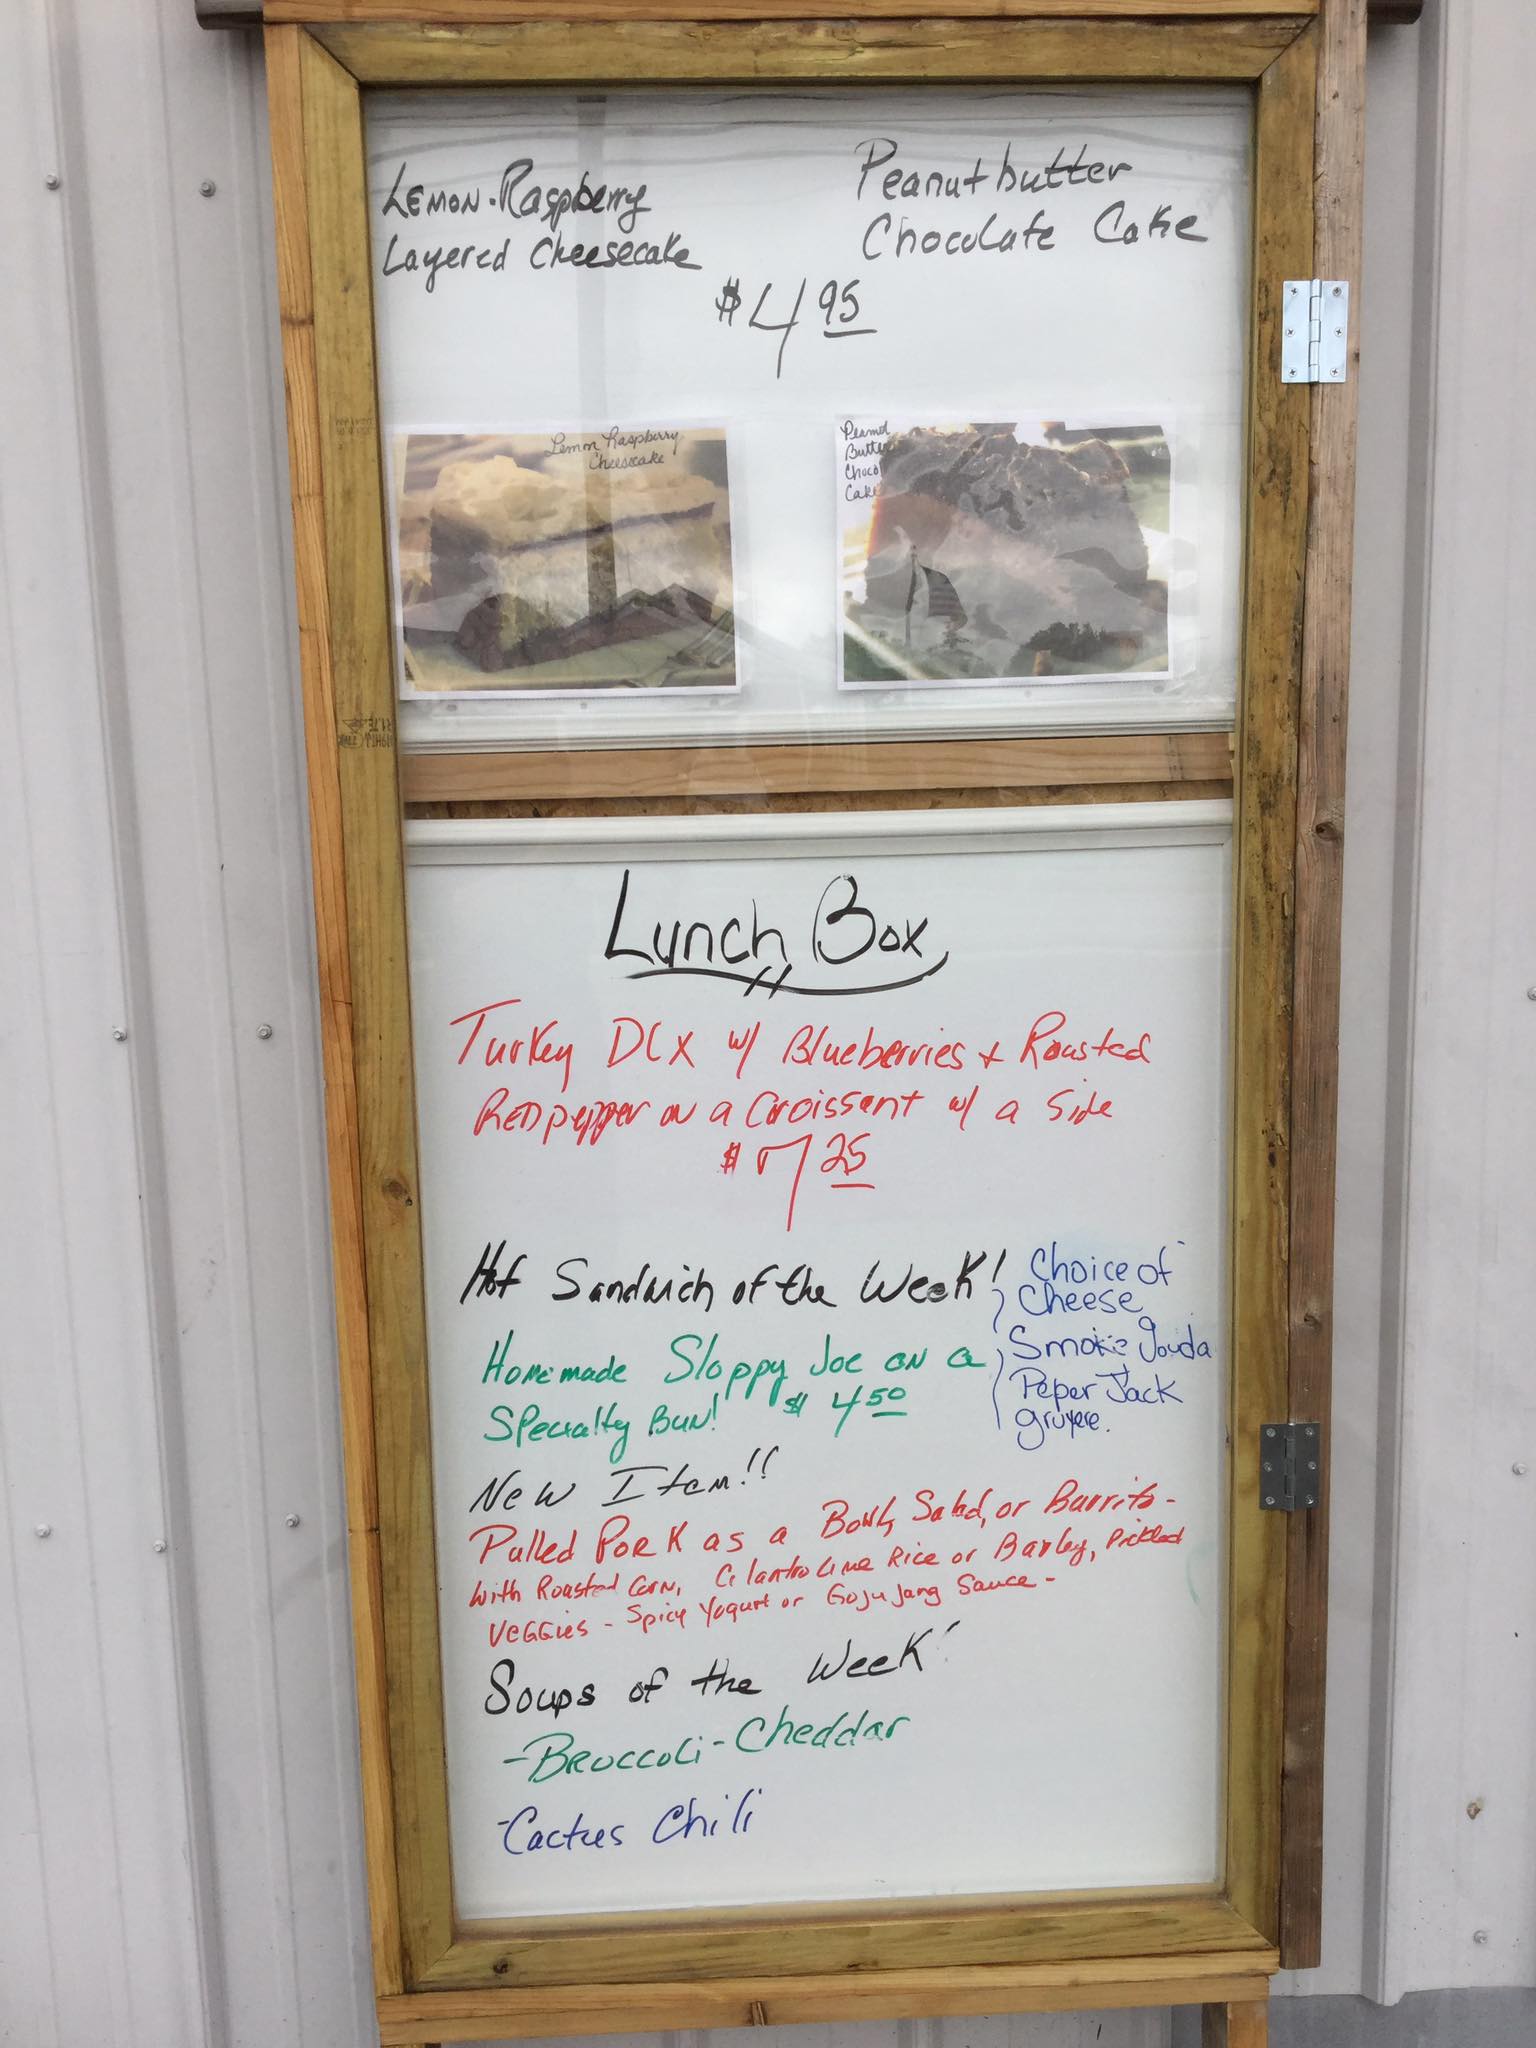 Lemon-Raspberry
Layered Cheesecake
Peanutbutter
Chocolate Cake
$4 95
Lemon Raspberry
Cheesecake
Peanut
Butter
Choco
Cake
Lunch Box
Turkey DLX w/ Blueberries & Roasted
Red pepper on a Croissant w/ a side
$7 25
Hot Sandwich of the Week!
Homemade Sloppy Joe on a
Specialty Bun! $4 50
Choice of
Cheese
Smoke gouda
Peper Jack
gruyere.
New Item!!
Pulled Pork as a Bowl, Salad, or Burrito-
with Roasted Corn, Cilantro Lime Rice or Barley, Pickled
Veggies - Spicy Yogurt or Gojujang Sauce-
Soups of the Week!
-Broccoli-Cheddar
-Cactus Chili